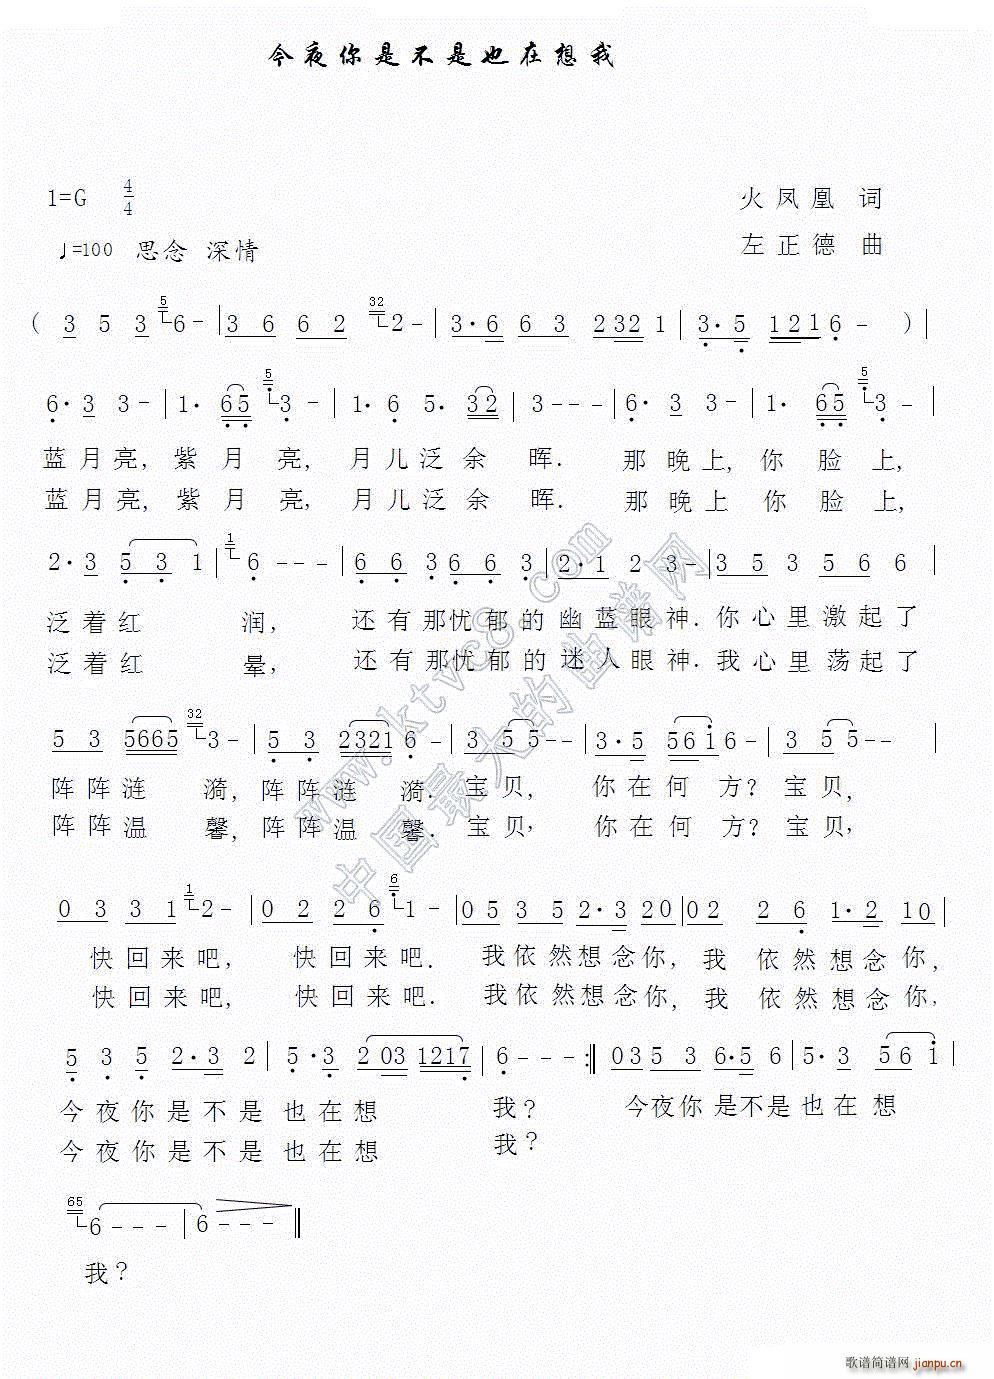 今夜你是不是也在想我
1=G 4/4
火凤凰 词
♩=100 思念 深情
左正德 曲
( 3 5 3 5 6 - | 3 6 6 2 32 2 - | 3·6 6 3 2321 | 3·5 1216 - ) |
6·3 3 - | 1·65 5 3 - | 1·6 5·32 | 3 - - - | 6·3 3 - | 1·65 5 3 - |
蓝月亮,紫月亮,月儿泛余晖.那晚上,你脸上,
蓝月亮,紫月亮,月儿泛余晖.那晚上你脸上,
2·3 5 3 1 | 1 6 - - - | 6 6 3 6 6 3 | 2·1 2 3 - | 3 5 3 5 6 6 |
泛着红润,还有那忧郁的幽蓝眼神.你心里激起了
泛着红晕,还有那忧郁的迷人眼神.我心里荡起了
5 3 5665 32 3 - | 5 3 2321 6 - | 3 5 5 - - | 3·5 561 6 - | 3 5 5 - - |
阵阵涟漪,阵阵涟漪.宝贝,你在何方?宝贝,
阵阵温馨,阵阵温馨.宝贝,你在何方?宝贝,
0 3 3 1 1 2 - | 0 2 2 6 6 1 - | 0 5 3 5 2·3 2 0 | 0 2 2 6 1·2 1 0 |
快回来吧,快回来吧.我依然想念你,我依然想念你,
快回来吧,快回来吧.我依然想念你,我依然想念你,
5 3 5 2·3 2 | 5·3 2 03 1217 | 6 - - - :‖ 0 3 5 3 6·5 6 | 5·3 5 6 1 |
今夜你是不是也在想我?今夜你是不是也在想
今夜你是不是也在想我?
65 6 - - - | 6 - - - ‖
我?
www.ktvc8.com
中国最大的曲谱网
歌谱简谱网 jianpu.cn